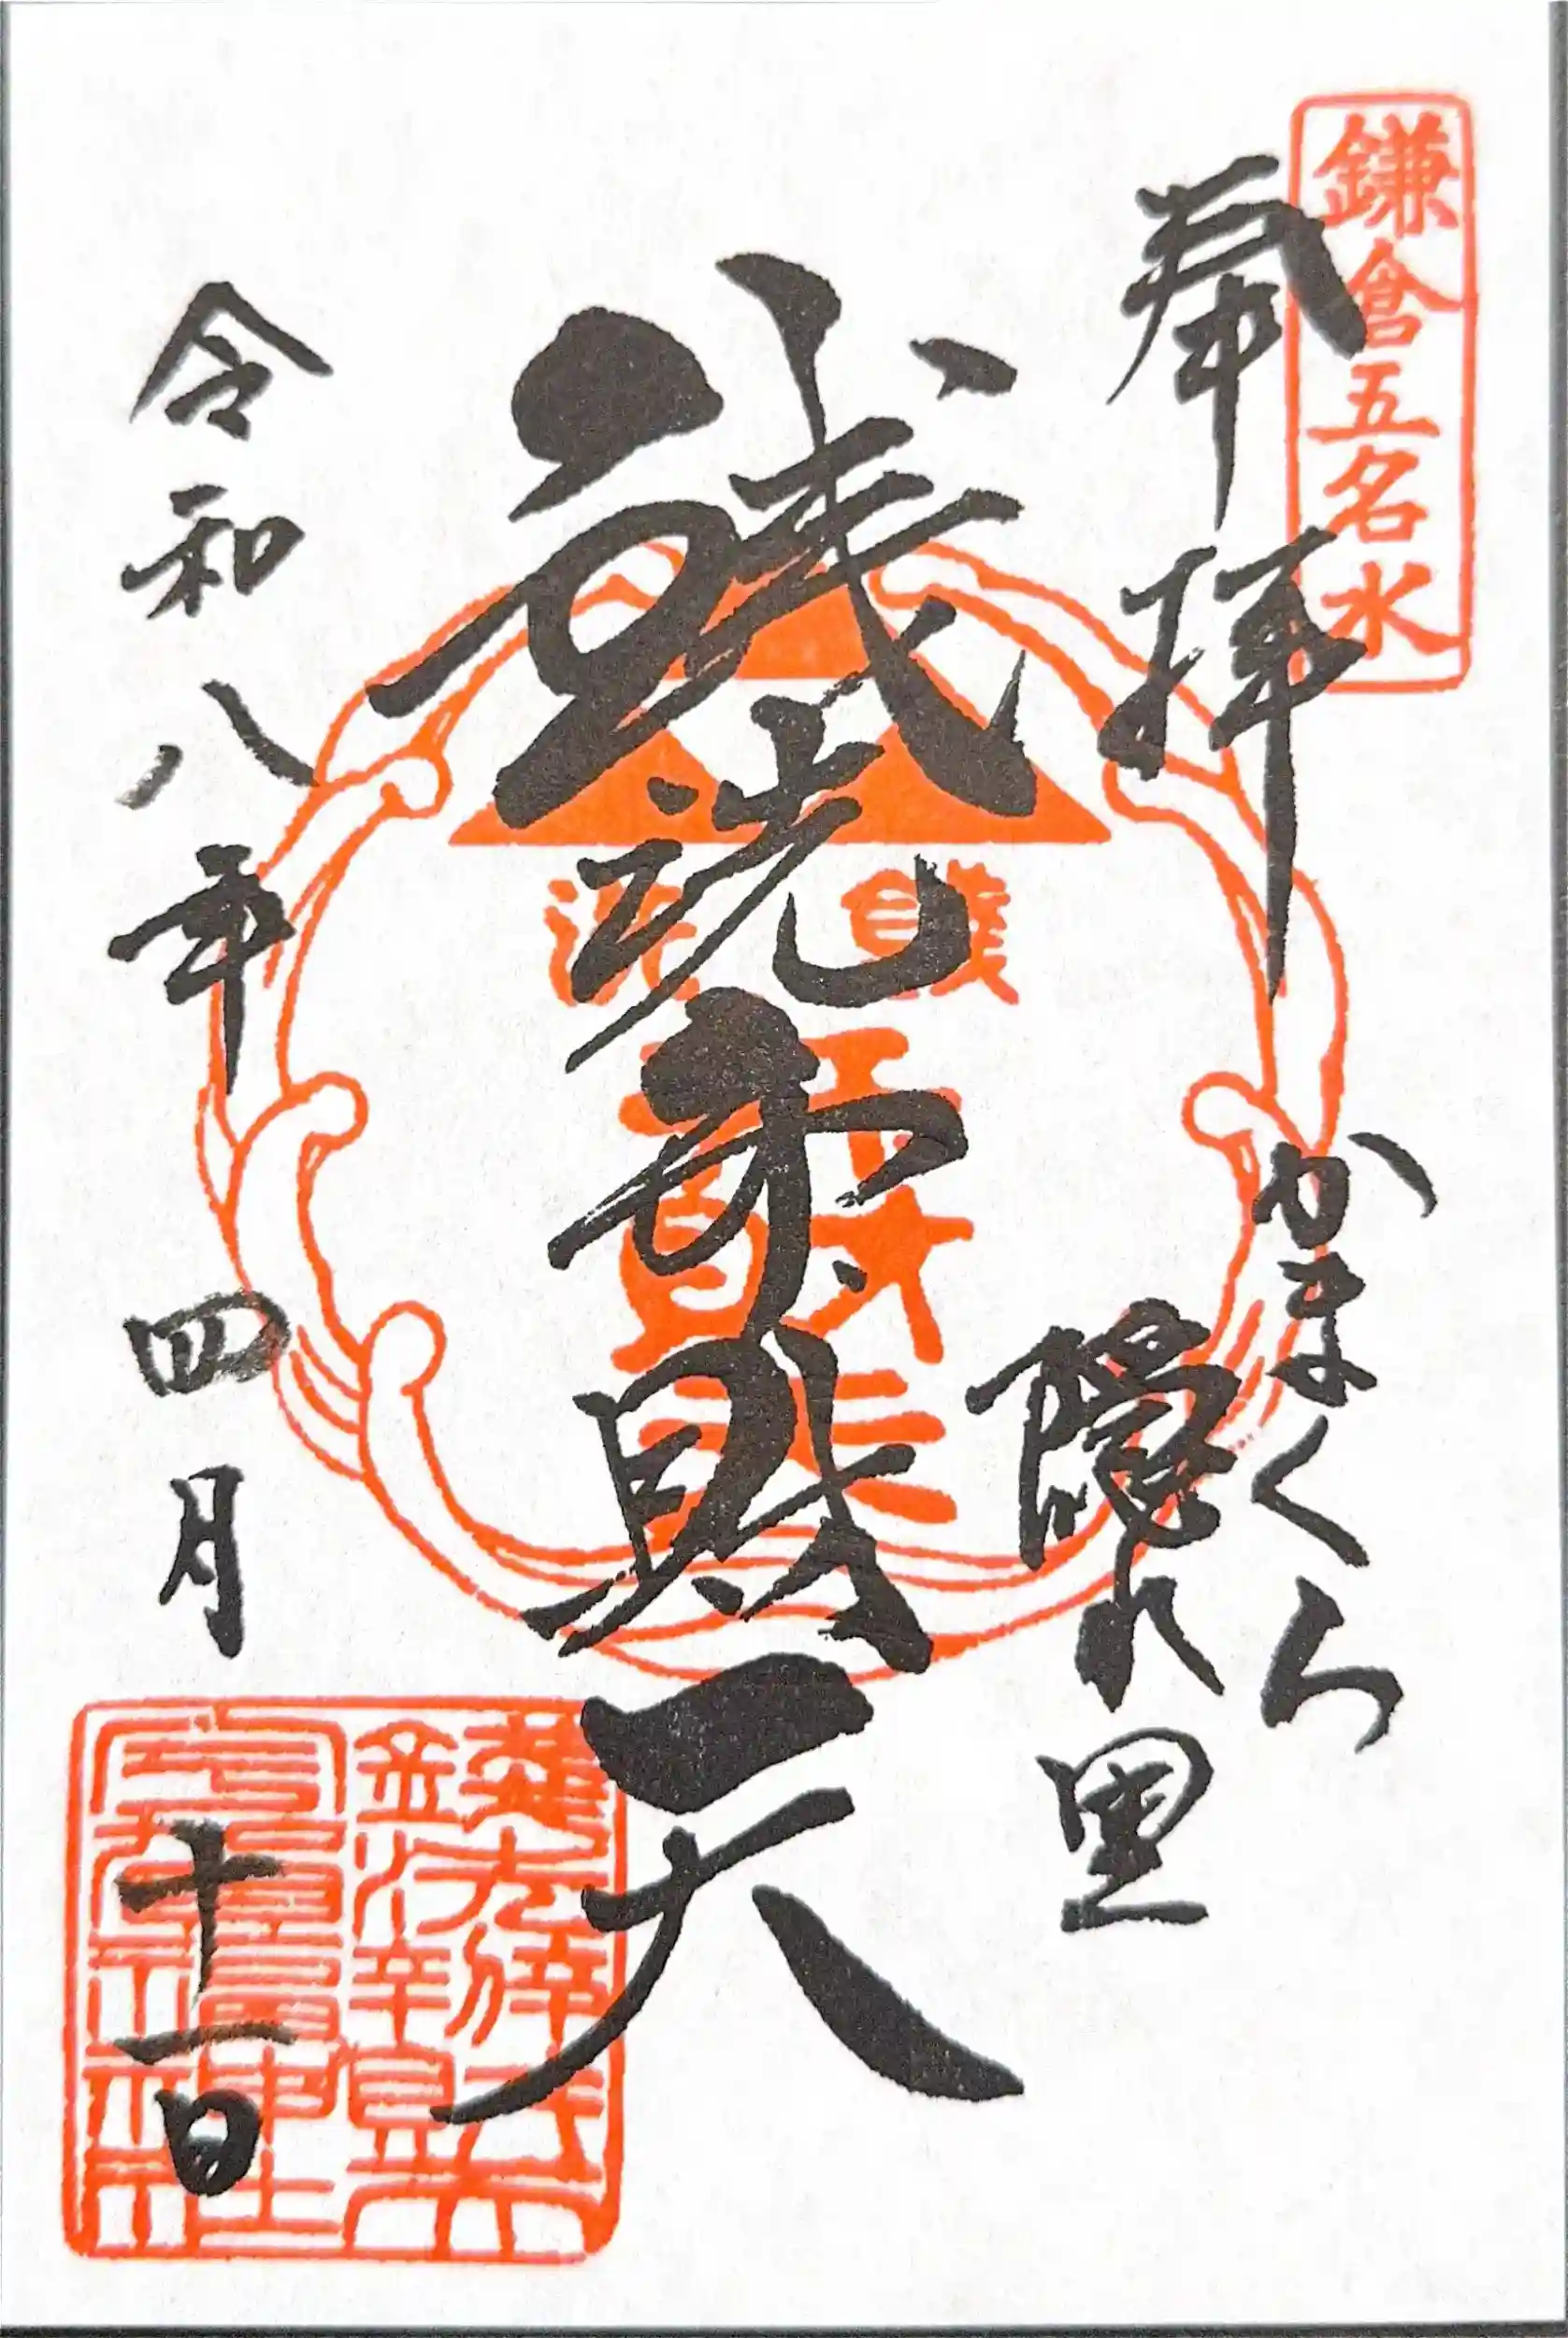 鎌倉五名水
奉拝
かまくら
隠れ里
銭洗弁財天
銭洗
令和八年
四月
十一日